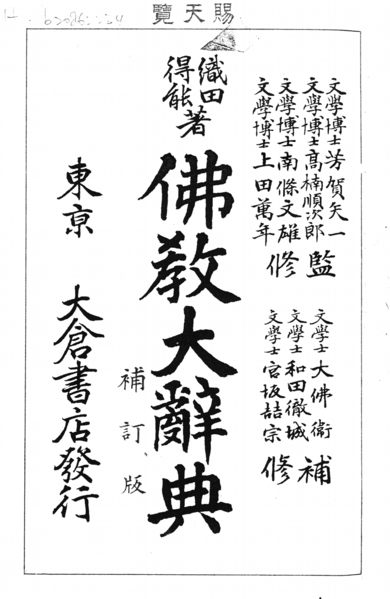 賜天覽
文學博士芳賀矢一
文學博士高楠順次郎
文學博士南條文雄
文學博士上田萬年
監修
文學士大佛衛
文學士和田徹城
文學士宮坂喆宗
補修
織田得能著
佛教大辭典
補訂版
東京 大倉書店發行